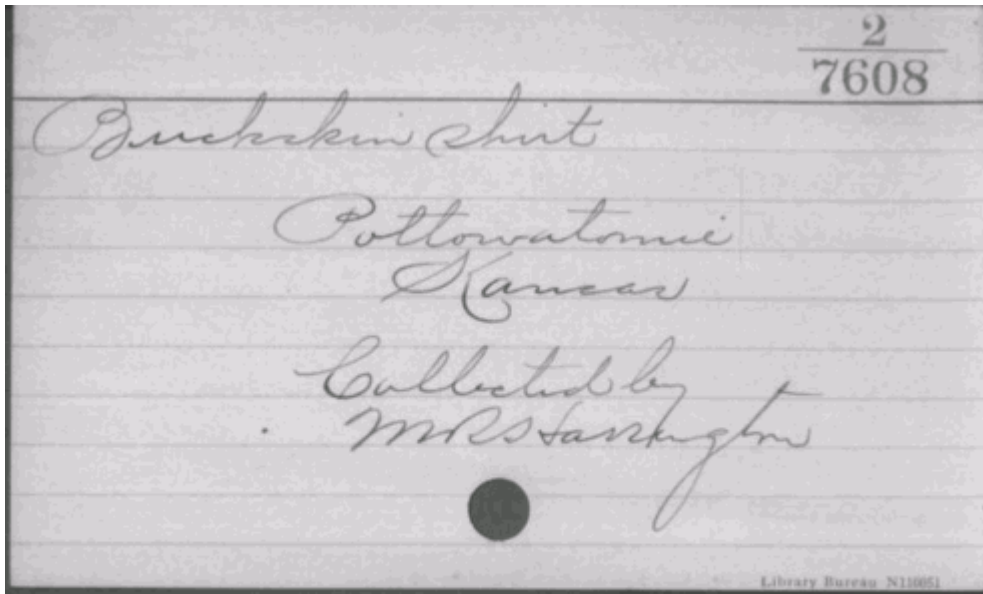 2
7608
Buckskin shirt
Pottowatomie
Kansas
Collected by
MR Harrington
Library Bureau N110051